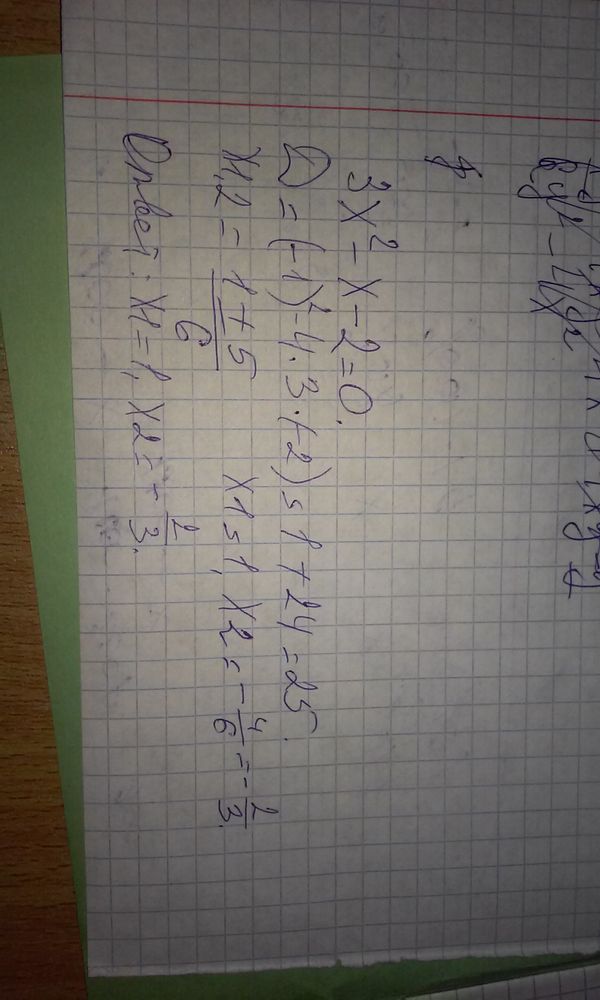 3x² - x - 2 = 0.
D = (-1)² - 4·3·(-2) = 1 + 24 = 25.
x1,2 = (1 ± 5)/6 x1 = 1, x2 = -4/6 = -2/3.
Ответ: x1 = 1, x2 = -2/3.